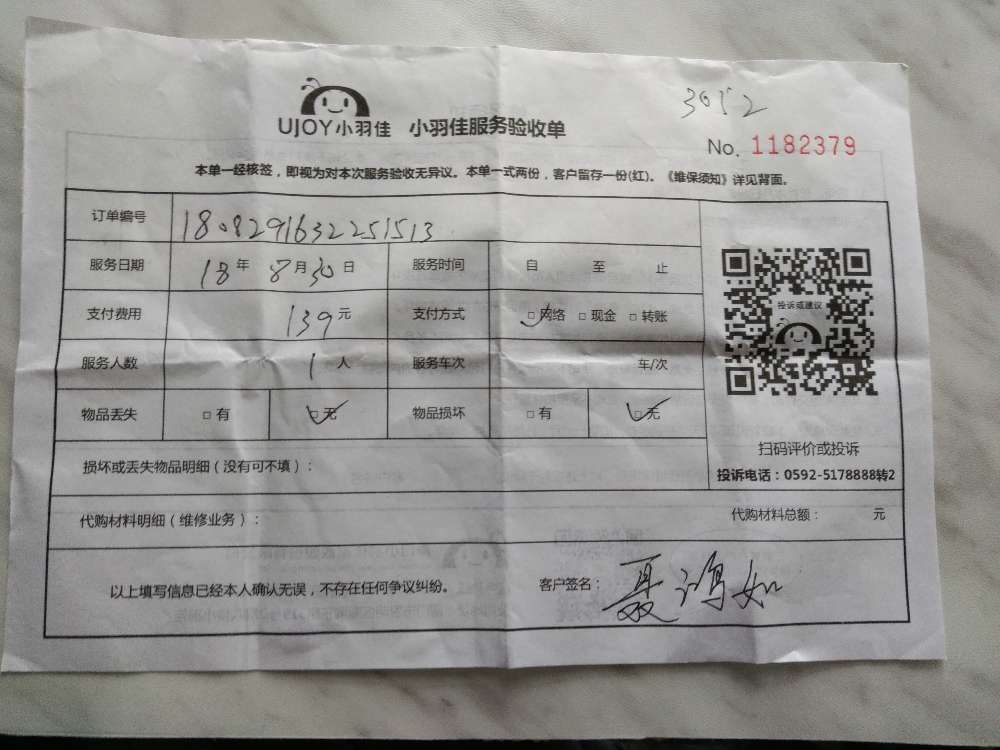 3052
UJOY小羽佳 小羽佳服务验收单
No. 1182379
本单一经核签，即视为对本次服务验收无异议。本单一式两份，客户留存一份(红)。《维保须知》详见背面。
订单编号 1808291632251513
服务日期 18年 8月30日 服务时间 自 至 止
支付费用 139元 支付方式 □网络 □现金 □转账
投诉或建议
服务人数 1人 服务车次 车/次
物品丢失 □有 □无 物品损坏 □有 □无
扫码评价或投诉
损坏或丢失物品明细（没有可不填）：
投诉电话：0592-5178888转2
代购材料明细（维修业务）： 代购材料总额： 元
以上填写信息已经本人确认无误，不存在任何争议纠纷。 客户签名：聂鸿如